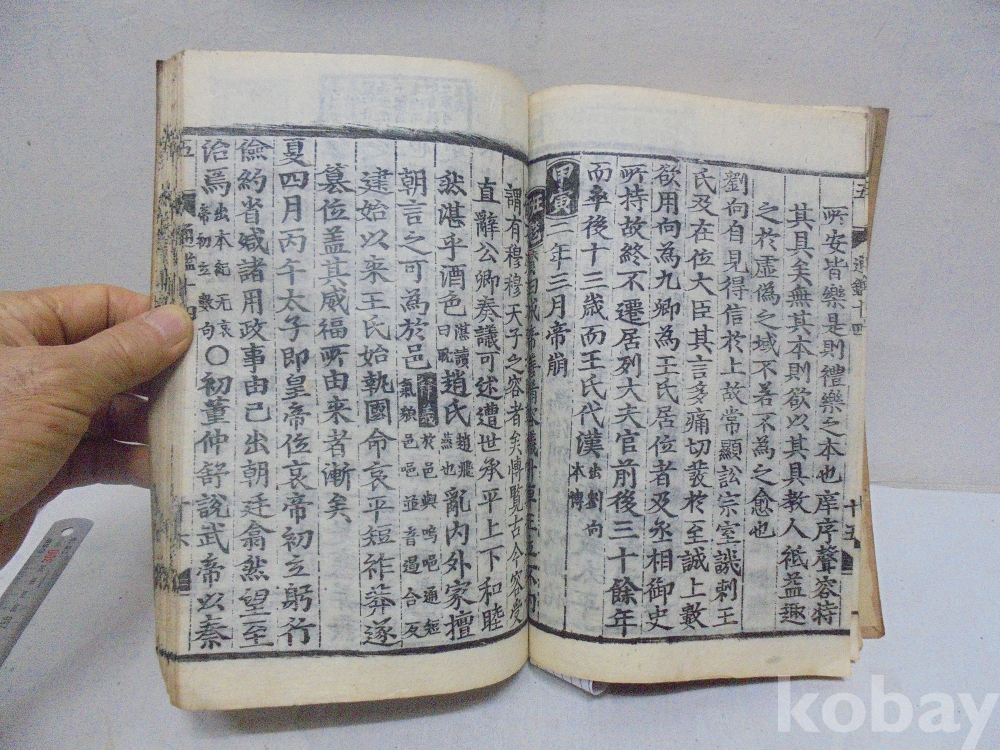 五 通鑑十四 十五
所安皆樂是則禮樂之本也庠序聲容特
其具矣無其本則欲以其具教人祗益趣
之於虛僞之域不若不為之愈也
劉向自見得信於上故常顯訟宗室譏刺王
氏及在位大臣其言多痛切發於至誠上數
欲用向為九卿為王氏居位者及丞相御史
所持故終不遷居列大夫官前後三十餘年
而卒後十三歲而王氏代漢出劉向本傳
甲寅二年三月帝崩
謂有穆穆天子之容者矣博覽古今容受
直辭公卿奏議可述遭世承平上下和睦
然湛乎酒色湛讀曰耽趙氏趙飛燕也亂內外家擅
朝言之可為於邑釋義於邑與嗚唈通短氣貌邑唈並音遏合反
建始以來王氏始執國命哀平短祚莽遂
篡位盖其威福所由來者漸矣
夏四月丙午太子即皇帝位哀帝初立躬行
儉約省减諸用政事由己出朝廷翕然望至
治焉出本紀无哀帝初立數句〇初董仲舒說武帝以秦
五 通鑑十四
kobay